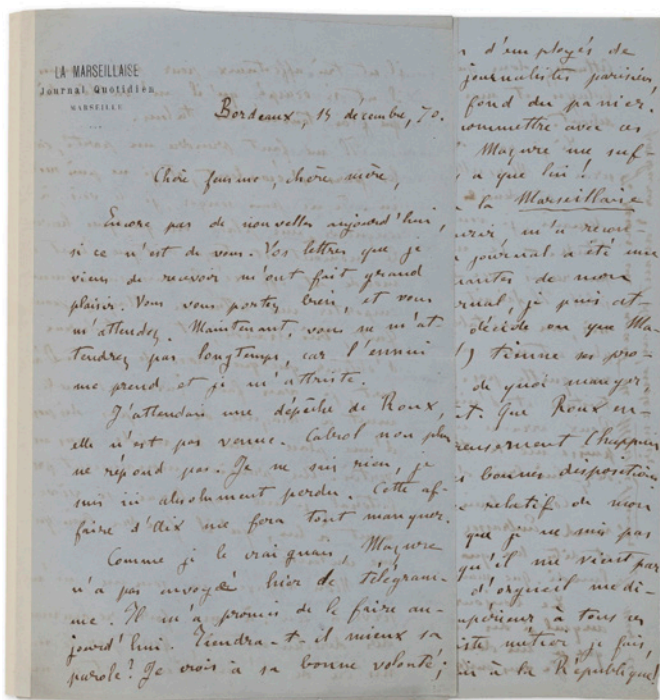 LA MARSEILLAISE
Journal Quotidien
MARSEILLE
Bordeaux, 15 décembre, 70.
Chère femme, chère mère,
Encore pas de nouvelles aujourd'hui,
si ce n'est de vous. Vos lettres que je
viens de recevoir m'ont fait grand
plaisir. Vous vous portez bien, et vous
m'attendez. Maintenant, vous ne m'at-
tendrez pas longtemps, car l'ennui
me prend et je m'attriste.
J'attendais une dépêche de Roux,
elle n'est pas venue. Cabrol non plus
ne répond pas. Je ne sais rien, je
suis ici absolument perdu. Cette af-
faire d'Aix me fera tout manquer.
Comme je le craignais, Masure
n'a pas envoyé hier de télégram-
me. Il m'a promis de le faire au-
jourd'hui. Tiendra-t-il mieux sa
parole? Je crois à sa bonne volonté;
d'employés de
journalistes parisiens,
fond du panier.
commettre avec ces
Masure me suf-
a que lui!
la Marseillaise
journal a été
de mon
je puis at-
décide ou que Ma-
tienne sa pro-
de quoi manger.
Que Roux en-
bonnes dispositions
relatif de mon
que je ne suis pas
qu'il me vient par
d'orgueil
à tous ces
métier je fais,
à la République!